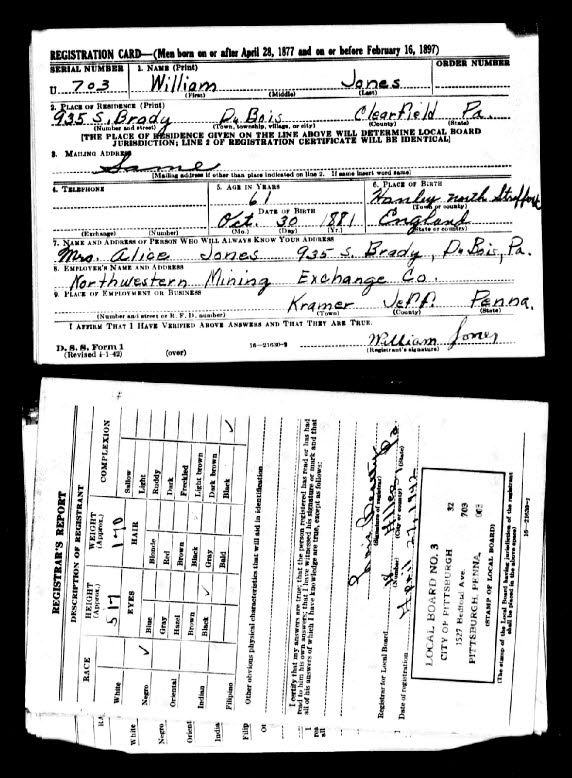 REGISTRATION CARD—(Men born on or after April 28, 1877 and on or before February 16, 1897)
SERIAL NUMBER 1. NAME (Print) ORDER NUMBER
U 703 William Jones
(First) (Middle) (Last)
2. PLACE OF RESIDENCE (Print)
935 S. Brady DuBois Clearfield Pa.
(Number and street) (Town, township, village, or city) (County) (State)
[THE PLACE OF RESIDENCE GIVEN ON THE LINE ABOVE WILL DETERMINE LOCAL BOARD
JURISDICTION; LINE 2 OF REGISTRATION CERTIFICATE WILL BE IDENTICAL]
3. MAILING ADDRESS
Same
[Mailing address if other than place indicated on line 2. If same insert word same]
4. TELEPHONE 5. AGE IN YEARS 6. PLACE OF BIRTH
61 Hanley north
DATE OF BIRTH (Town or county)
Oct. 30 1881 England
(Exchange) (Number) (Mo.) (Day) (Yr.) (State or country)
7. NAME AND ADDRESS OF PERSON WHO WILL ALWAYS KNOW YOUR ADDRESS
Mrs. Alice Jones 935 S. Brady, DuBois, Pa.
8. EMPLOYER'S NAME AND ADDRESS
Northwestern Mining Exchange Co.
9. PLACE OF EMPLOYMENT OR BUSINESS
Kramer Jeff. Penna.
(Number and street or R. F. D. number) (Town) (County) (State)
I AFFIRM THAT I HAVE VERIFIED ABOVE ANSWERS AND THAT THEY ARE TRUE.
D. S. S. Form 1 William Jones
(Revised 4-1-42) (over) 16-21630-2 (Registrant's signature)
REGISTRAR'S REPORT
DESCRIPTION OF REGISTRANT
RACE HEIGHT (Approx.) WEIGHT (Approx.) COMPLEXION
5 1 7 170
EYES HAIR
White ✓ Blue Blonde Sallow
Negro Gray Red Light
Oriental Hazel Brown Ruddy
Indian Brown Black Dark
Filipino Black Gray ✓ Freckled
Bald Light brown
Dark brown
Black
Other obvious physical characteristics that will aid in identification
I certify that my answers are true; that the person registered has read or has had
read to him his own answers; that I have witnessed his signature or mark and that
all of his answers of which I have knowledge are true, except as follows:
(Signature of registrar)
Registrar for Local Board
(Number) (City or county) (State)
Date of registration April 27, 1942
LOCAL BOARD NO. 3 32
CITY OF PITTSBURGH 703
1527 Bedford Ave. 003
PITTSBURGH, PENNA.
(STAMP OF LOCAL BOARD)
(The stamp of the Local Board having jurisdiction of the registrant
shall be placed in the above space)
16-21630-1
White
Negro
Orient
India
Filip